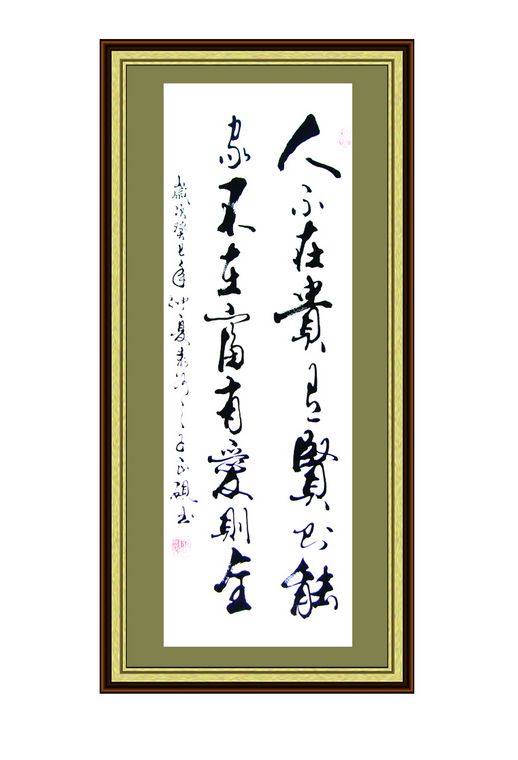 人不在貴有賢則能
家不在富有愛則全
歲次癸巳年仲夏